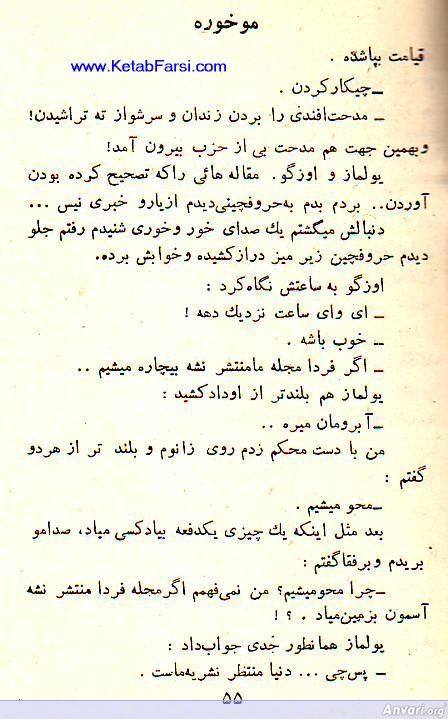 موخوره
قیامت بپاشده .
www.KetabFarsi.com
ــ چیکارکردن .
ــ مدحت‌افندی را بردن زندان و سرشواز ته تراشیدن!
وبهمین جهت هم مدحت بی از حزب بیرون آمد!
یولماز و اوزگو . مقاله هائی راکه تصحیح کرده بودن
آوردن.. بردم بدم به‌حروفچینی‌دیدم ازیارو خبری نیس ...
دنبالش میگشتم یك صدای خور وخوری شنیدم رفتم جلو
دیدم حروفچین زیر میز درازکشیده وخوابش برده.
اوزگو به ساعتش نگاه‌کرد :
ــ ای وای ساعت نزدیك دهه !
ــ خوب باشه .
ــ اگر فردا مجله مامنتشر نشه بیچاره میشیم ..
یولماز هم بلندتر از اودادکشید :
ــ آبرومان میره ..
من با دست محکم زدم روی زانوم و بلند تر از هردو
گفتم :
ــ محو میشیم .
بعد مثل اینکه یك چیزی یکدفعه بیادکسی میاد، صدامو
بریدم وبرفقاگفتم :
ــ چرا محومیشیم؟ من نمی‌فهمم اگرمجله فردا منتشر نشه
آسمون بزمین‌میاد . ؟ !
یولماز همانطور جدی جواب‌داد :
ــ پس‌چی ... دنیا منتظر نشریه‌ماست .
۵۵
Anvari.org